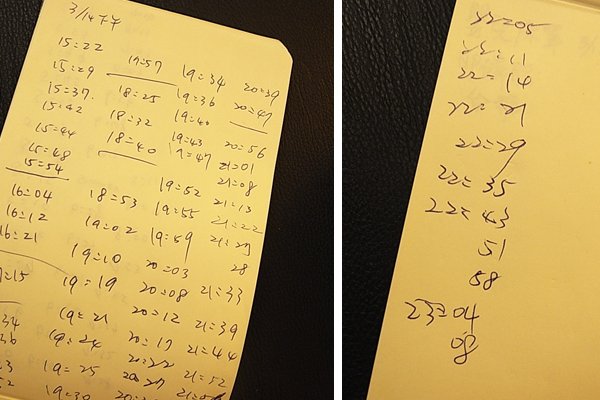 3/14
15=22
15=29
15=37
15=42
15=44
15=48
15=54
16=04
16=12
16=21
17=57
18=25
18=32
18=40
18=53
19=02
19=10
19=19
19=21
19=24
19=25
19=30
19=34
19=36
19=40
19=43
19=47
19=52
19=55
19=59
20=03
20=08
20=12
20=17
20=22
20=27
20=39
20=47
20=56
21=01
21=08
21=13
21=22
21=27
28
21=33
21=39
21=44
21=52
22=05
22=11
22=14
22=21
22=29
22=35
22=43
51
58
23=04
08